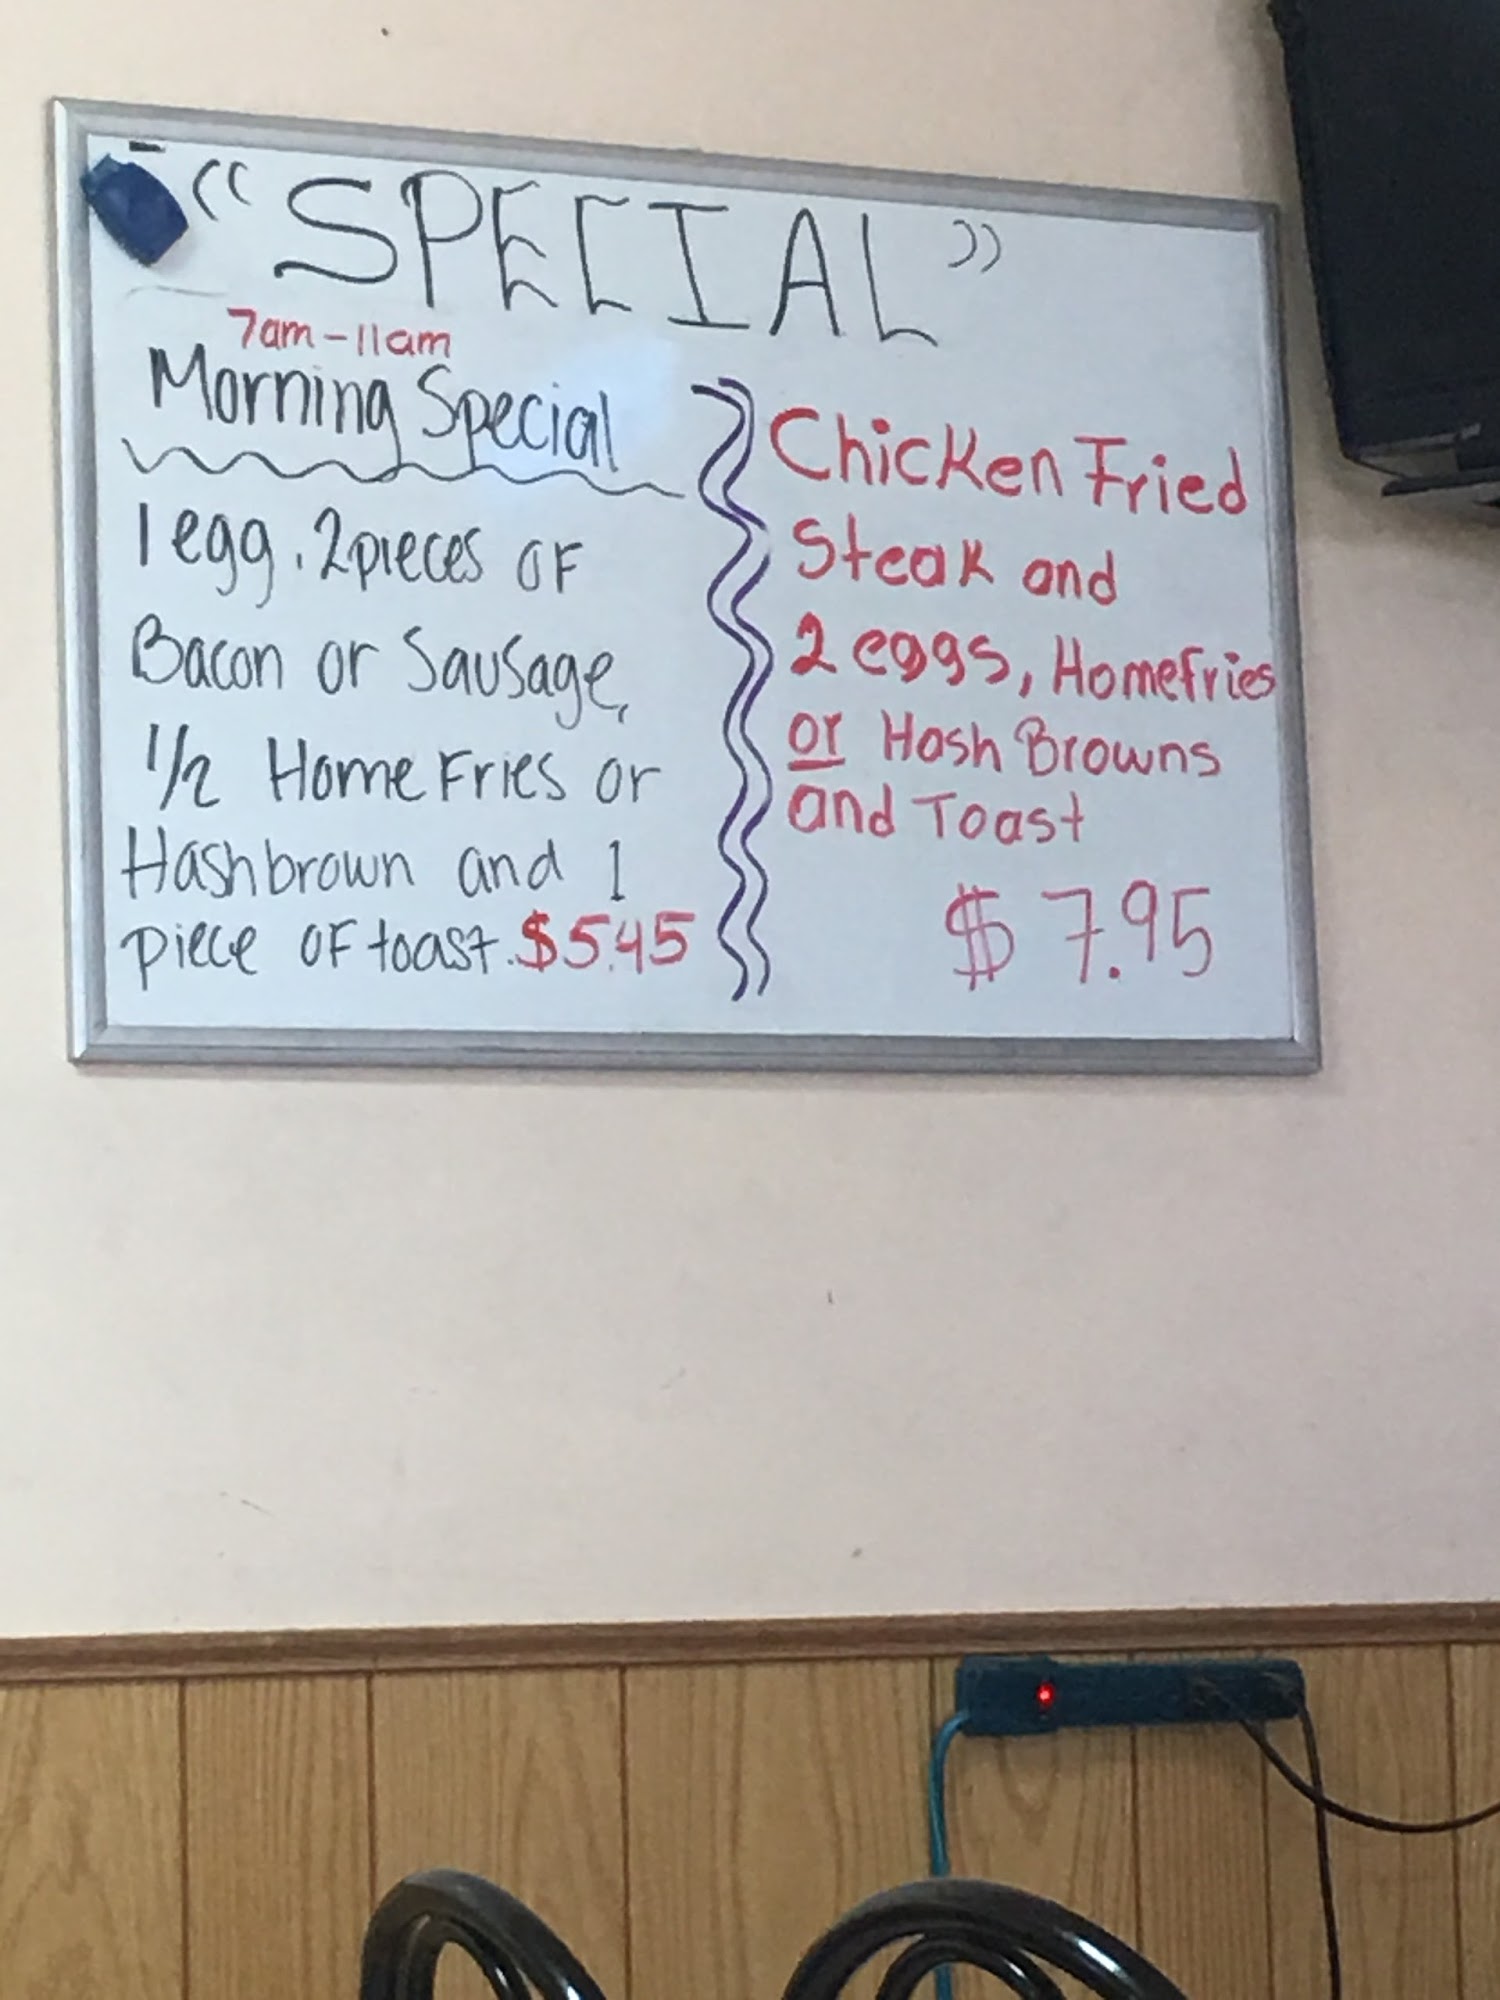 “SPECIAL”
7am-11am
Morning Special
1 egg. 2 pieces OF
Bacon or Sausage,
1/2 Home Fries or
Hashbrown and 1
piece OF toast. $5.45
Chicken Fried
Steak and
2 eggs, Homefries
or Hash Browns
and Toast
$7.95